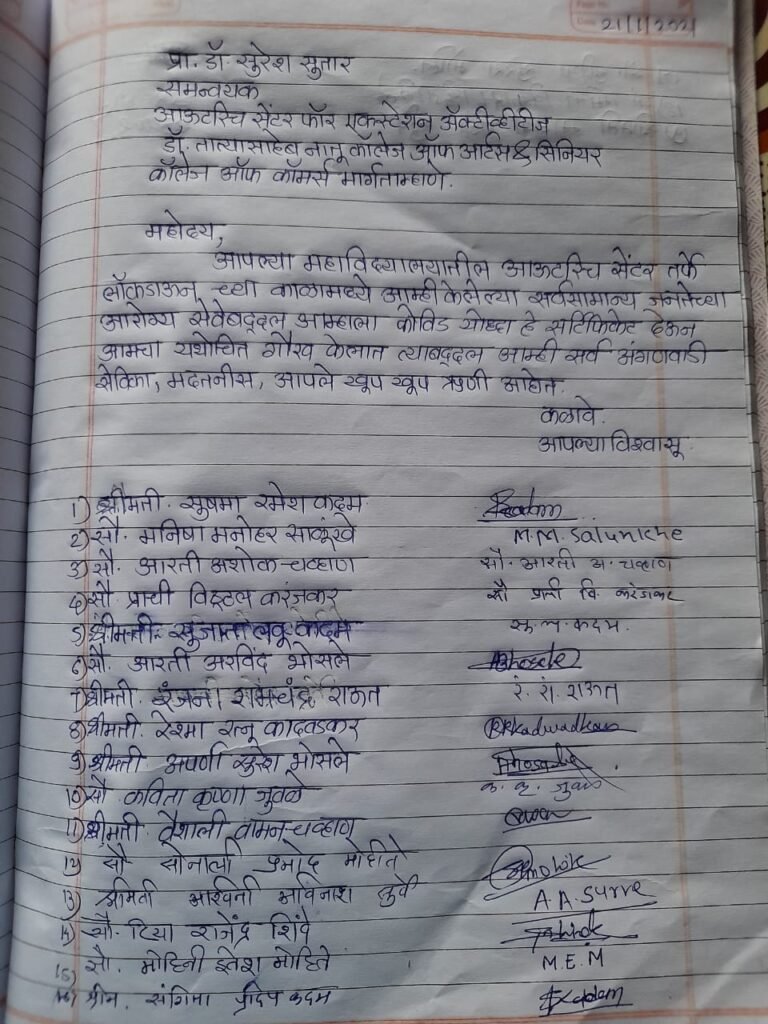 21/1/2021
प्रा. डॉ. सुरेश सुतार
समन्वयक
आऊटरिच सेंटर फॉर एकस्टेशन अ‍ॅक्टीव्हीटीज
डॉ. तात्यासाहेब नातू कॉलेज ऑफ आर्टस & सिनियर
कॉलेज ऑफ कॉमर्स मार्गताम्हाणे.
महोदय,
आपल्या महाविद्यालयातील आऊटरिच सेंटर तर्फे
लॉकडाऊन च्या काळामध्ये आम्ही केलेल्या सर्वसामान्य जनतेच्या
आरोग्य सेवेबद्दल आम्हाला कोविड योध्दा हे सर्टिफिकेट देऊन
आमचा यथोचित गौरव केलात त्याबद्दल आम्ही सर्व अंगणवाडी
सेविका, मदतनीस, आपले खूप खूप ऋणी आहोत.
कळावे.
आपल्या विश्वासू.
1) श्रीमती. सुषमा रमेश कदम Kadam
2) सौ. मनिषा मनोहर साळुंखे M.M. Salunkhe
3) सौ. आरती अशोक चव्हाण सौ. आरती अ. चव्हाण
4) सौ. प्राची विठ्ठल करंजकर सौ प्राची वि. करंजकर
5) श्रीमती. सुजाता लवू कदम सु. ल. कदम.
6) सौ. आरती अरविंद भोसले ABhosale
7) श्रीमती रंजना रामचंद्र राऊत रं. रा. राऊत
8) श्रीमती. रेश्मा रत्नू कादवडकर RRKadwadkar
9) श्रीमती अपर्णा सुरेश भोसले Bhosale
10) सौ. कविता कृष्णा जुवळे क. कृ. जुवळे
11) श्रीमती. वैशाली वामन चव्हाण
12) सौ सोनाली प्रमोद मोहीते Smohite
13) श्रीमती अश्विनी अविनाश सुर्वे A.A. Surve
14) सौ. दिया राजेंद्र शिर्वे
15) सौ. मोहिनी ईलेश मोहिते M.E.M
16) श्रीम. संगिमा प्रदिप कदम Kadam